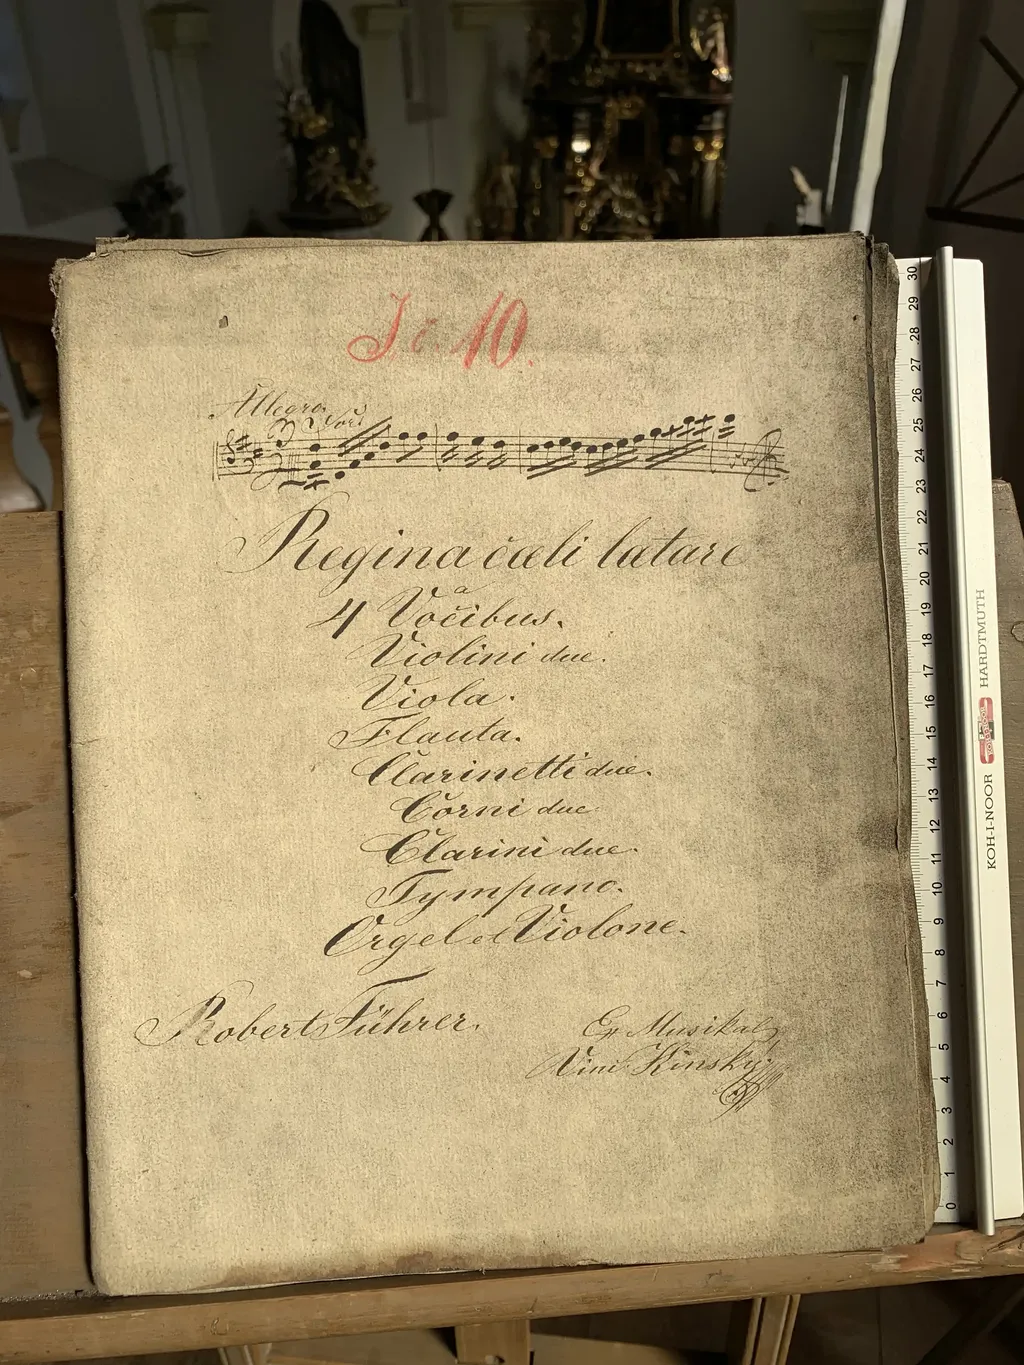 10.
Allegro.
Regina cœli lætare
a
4 Vocibus.
Violini due.
Viola.
Flauta.
Clarinetti due.
Corni due
Clarini due.
Tympano.
Orgel et Violone.
Robert Führer.
Musikal
Kinsky
30
29
28
27
26
25
24
23
22
21
20
19
18
17
16
15
14
13
12
11
10
9
8
7
6
5
4
3
2
1
0
KOH-I-NOOR HARDTMUTH